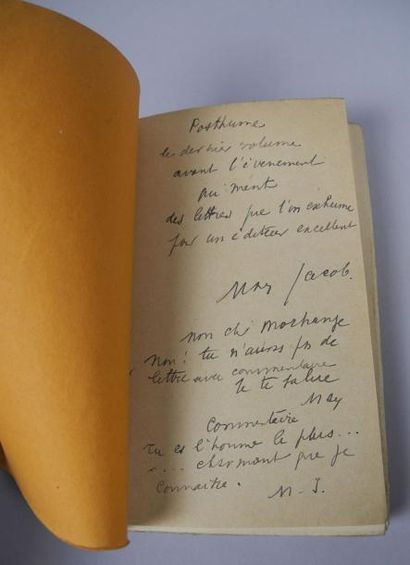 Posthume
le dernier volume
avant l'évenement
qui ment
des lettres que l'on exhume
par un éditeur excellent
Max Jacob.
non cher Morhange
Non! tu n'auras pas de
lettre avec commentaire
Je te salue
Max
Commentaire
Tu es l'homme le plus...
.... charmant que je
connaisse.
M. J.